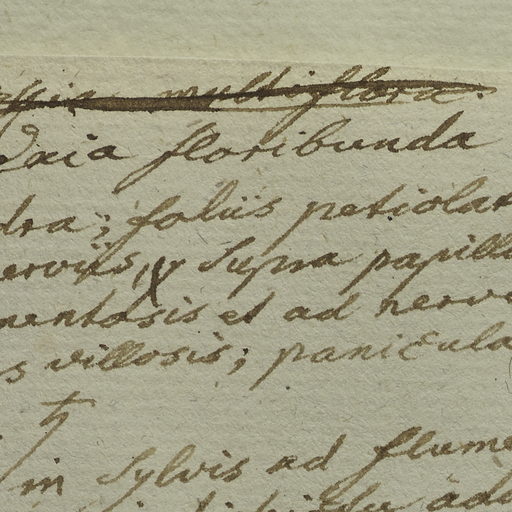 multiflora.
floribunda
dra; foliis petiolat
nerviis, supra papill
mentosis et ad nerv
s villosis; panicula
♄
in sylvis ad flume